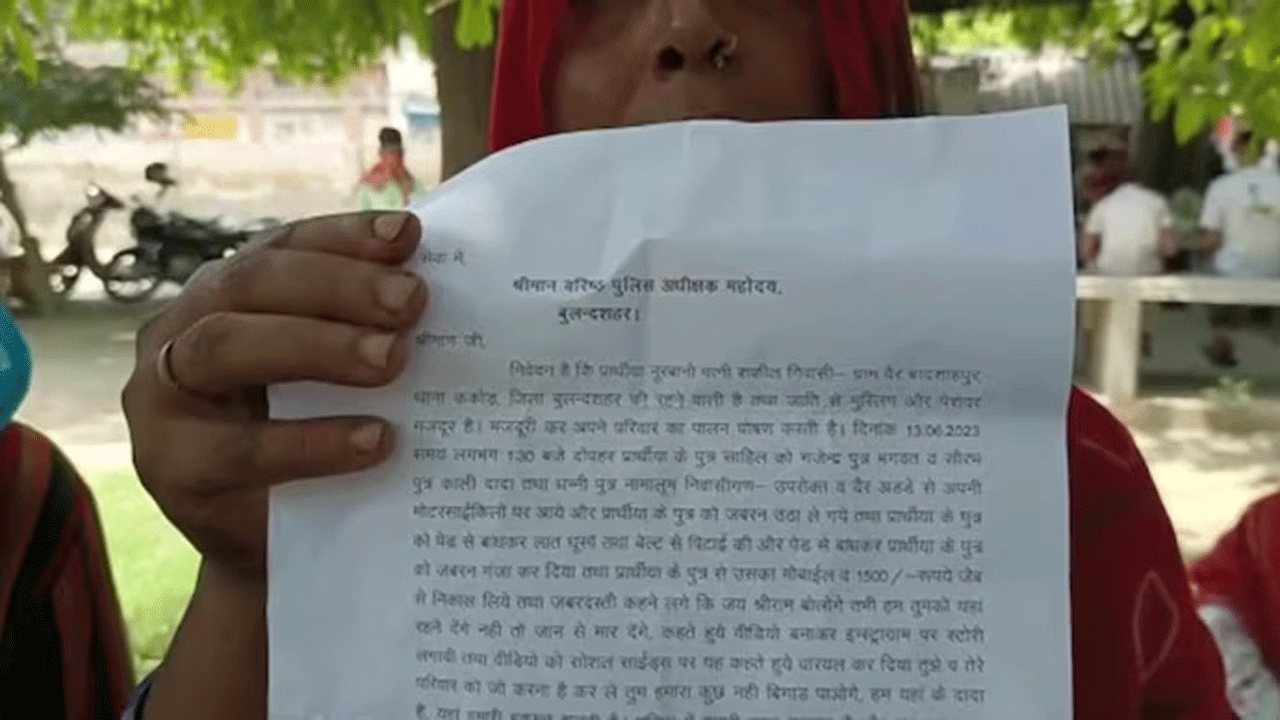 सेवा में,
श्रीमान वरिष्ठ पुलिस अधीक्षक महोदय,
बुलन्दशहर।
श्रीमान जी,
निवेदन है कि प्रार्थीया नूरबानो पत्नी शकील निवासी– ग्राम वैर बादशाहपुर,
थाना ककोड़, जिला बुलन्दशहर की रहने वाली है तथा जाति से मुस्लिम और पेशेवर
मजदूर है। मजदूरी कर अपने परिवार का पालन पोषण करती है। दिनांक 13.06.2023
समय लगभग 1:30 बजे दोपहर प्रार्थीया के पुत्र साहिल को गजेन्द्र पुत्र भगवत व सौरभ
पुत्र काली दादा तथा धन्नी पुत्र नामालूम निवासीगण– उपरोक्त व वैर अडडे से अपनी
मोटरसाईकिलों पर आये और प्रार्थीया के पुत्र को जबरन उठा ले गये तथा प्रार्थीया के पुत्र
को पेड से बांधकर लात घूसों तथा बेल्ट से पिटाई की और पेड से बांधकर प्रार्थीया के पुत्र
को जबरन गंजा कर दिया तथा प्रार्थीया के पुत्र से उसका मोबाईल व 1500/–रूपये जेब
से निकाल लिये तथा जबरदस्ती कहने लगे कि जय श्रीराम बोलोगे तभी हम तुमको यहां
रहने देंगे नही तो जान से मार देंगे, कहते हुये वीडियो बनाकर इन्स्ट्राग्राम पर स्टोरी
लगायी तथा वीडियो को सोशल साईड्स पर यह कहते हुये वायरल कर दिया तुझे व तेरे
परिवार को जो करना है कर ले तुम हमारा कुछ नही बिगाड पाओगे, हम यहां के दादा
है, यहां हमारी